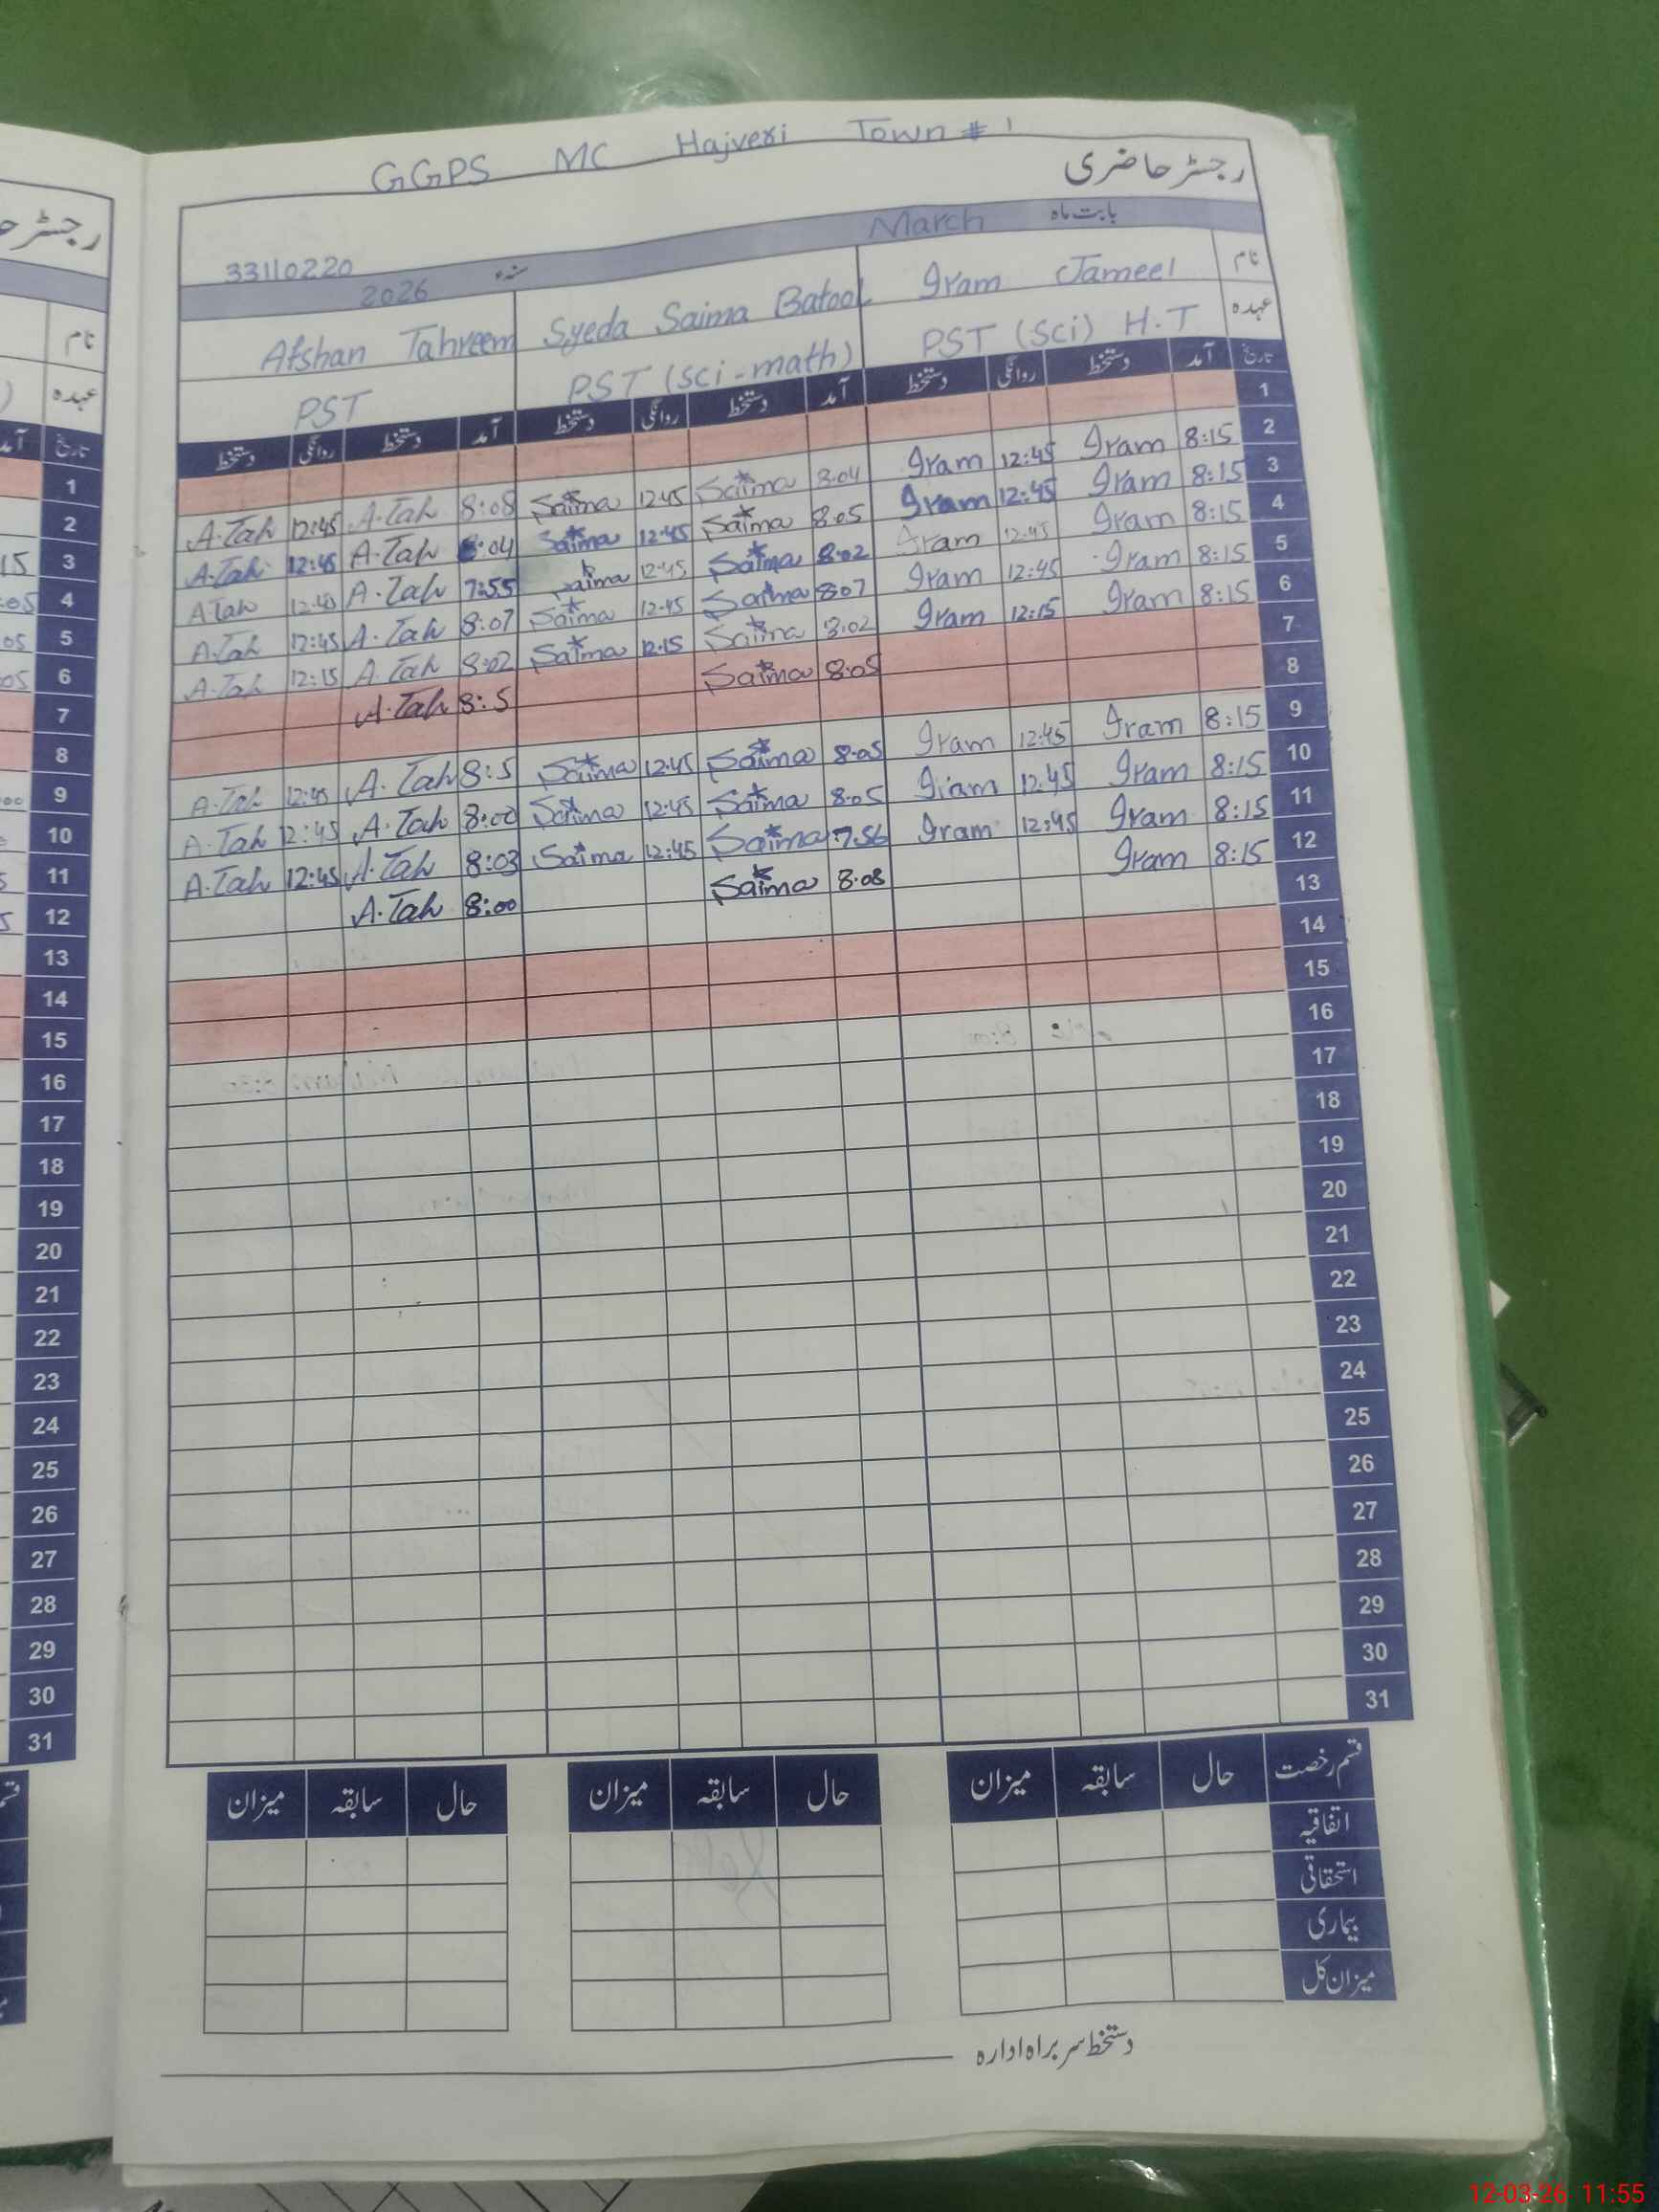 GGPS MC Hajveri Town # 1
رجسٹر حاضری
33110220 March بابت ماہ
2026 سنہء
نام Iram Jameel Syeda Saima Batool Afshan Tahreem
عہدہ PST (Sci) H.T PST (Sci-math) PST
تاریخ آمد دستخط روانگی دستخط آمد دستخط روانگی دستخط آمد دستخط روانگی دستخط
1
2 8:15 Iram 12:45 Iram 8:04 Saima 12:45 Saima 8:08 A.Tah 12:45 A.Tah
3 8:15 Iram 12:45 Iram 8:05 Saima 12:45 Saima 8:04 A.Tah 12:45 A.Tah
4 8:15 Iram 12:45 Iram 8:02 Saima 12:45 Saima 7:55 A.Tah 12:45 A.Tah
5 8:15 Iram 12:45 Iram 8:07 Saima 12:45 Saima 8:07 A.Tah 12:45 A.Tah
6 8:15 Iram 12:15 Iram 8:02 Saima 12:15 Saima 8:02 A.Tah 12:15 A.Tah
7 8:05 Saima 8:5 A.Tah
8
9 8:15 Iram 12:45 Iram 8:05 Saima 12:45 Saima 8:5 A.Tah 12:45 A.Tah
10 8:15 Iram 12:45 Iram 8:05 Saima 12:45 Saima 8:00 A.Tah 12:45 A.Tah
11 8:15 Iram 12:45 Iram 7:56 Saima 12:45 Saima 8:03 A.Tah 12:45 A.Tah
12 8:15 Iram 8:08 Saima 8:00 A.Tah
13
14
15
16
17
18
19
20
21
22
23
24
25
26
27
28
29
30
31
قسم رخصت حال سابقہ میزان حال سابقہ میزان حال سابقہ میزان
اتفاقیہ
استحقاقی
بیماری
میزان کل
دستخط سربراہ ادارہ
رجسٹر
نام
عہدہ
تاریخ
1
2
3
4
5
6
7
8
9
10
11
12
13
14
15
16
17
18
19
20
21
22
23
24
25
26
27
28
29
30
31
12-03-26 11:55